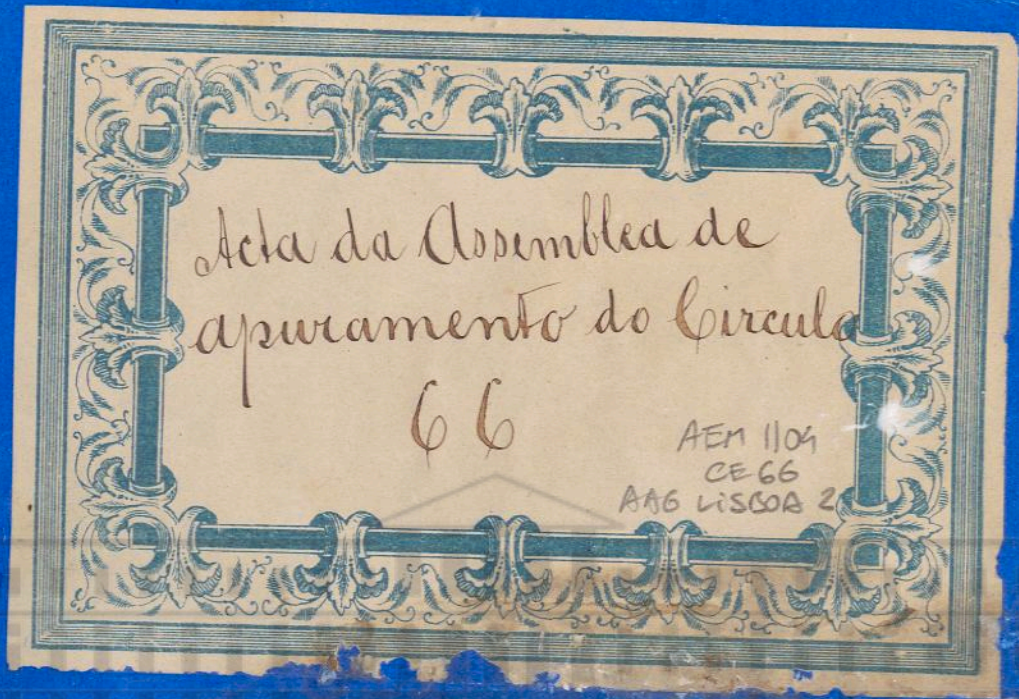 Acta da Assemblea de
apuramento do Circulo
66
AEM 1104
CE 66
AAG LISBOA 2